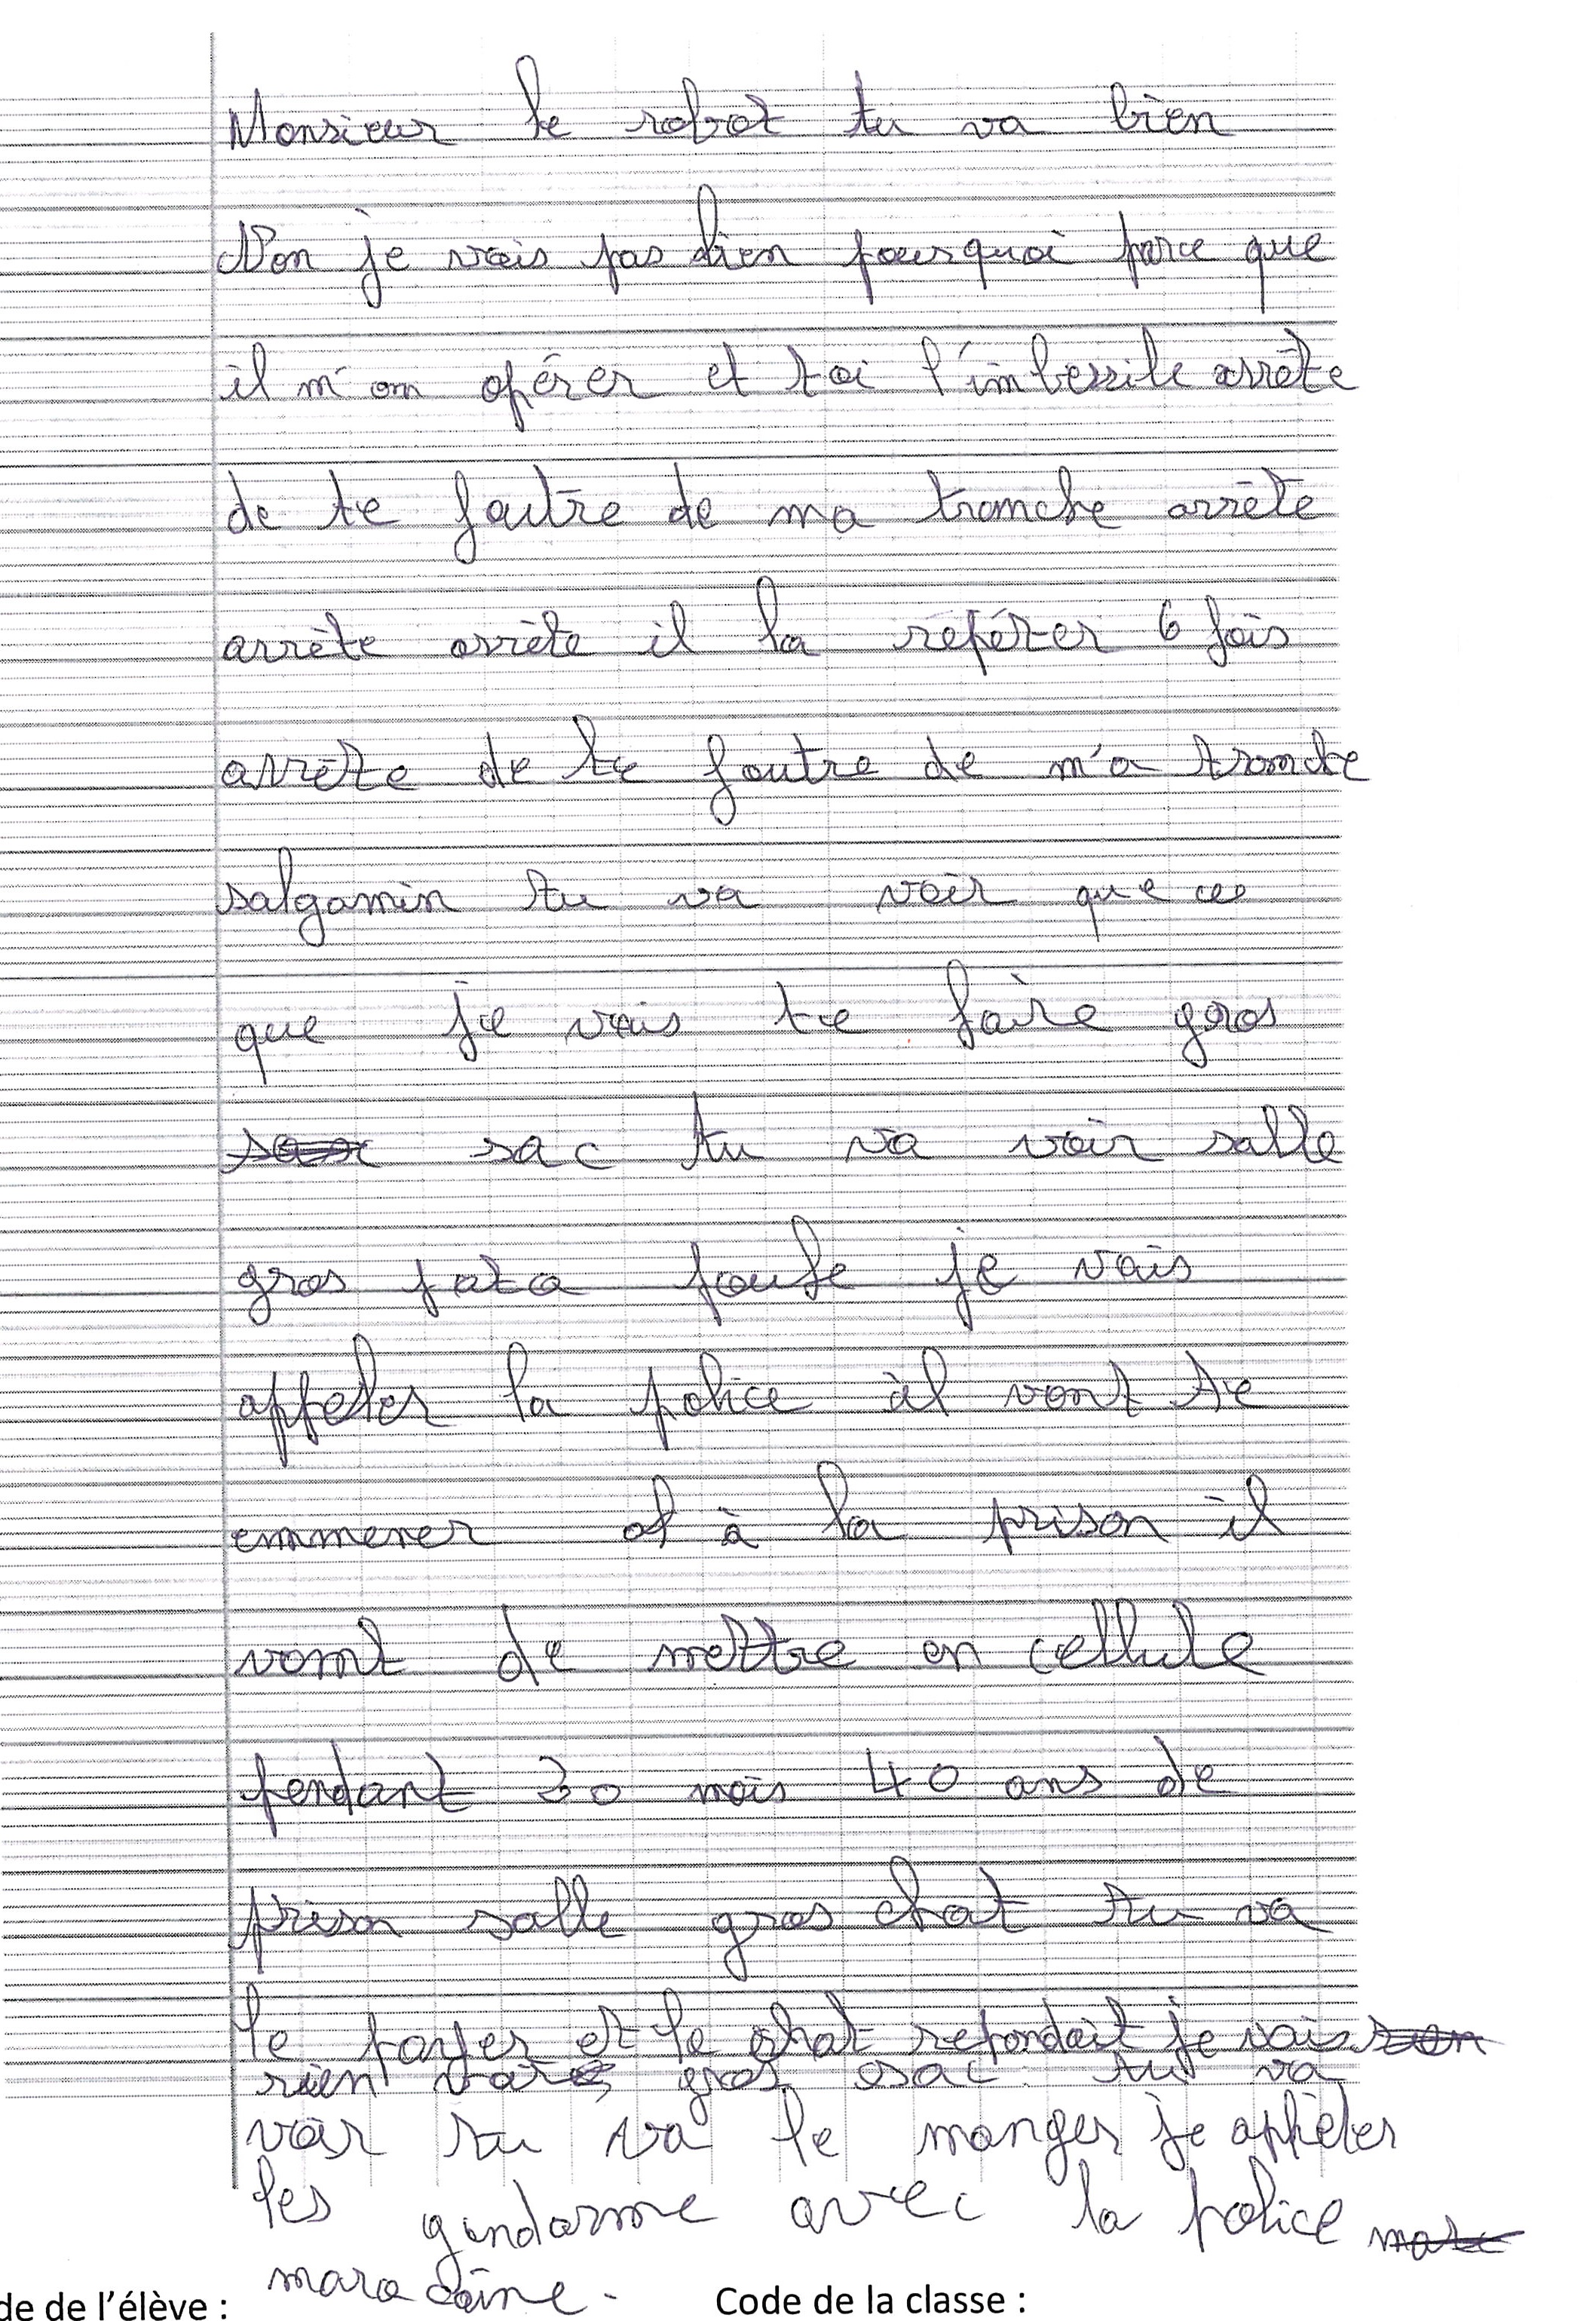 Monsieur le robot tu va bien
Non je vais pas bien pourquoi parce que
il m'on opérer et toi l'imbessile arrête
de te foutre de ma tronche arrète
arrète arrète il la répéter 6 fois
arrète de te foutre de m'a tronche
salgamin tu va voir que ce
que je vais te faire gros
sac tu va voir salle
gros pata poufe je vais
appeler la police il vont te
emmener à la prison il
vont de mettre en cellule
pendant 30 mois 40 ans de
prison salle gros chat tu va
le payer et le chat repondait je vais
rien gros sac tu va
voir tu va le manger je appeler
les gendarme avec la police
maracaine.
de de l'élève : Code de la classe :